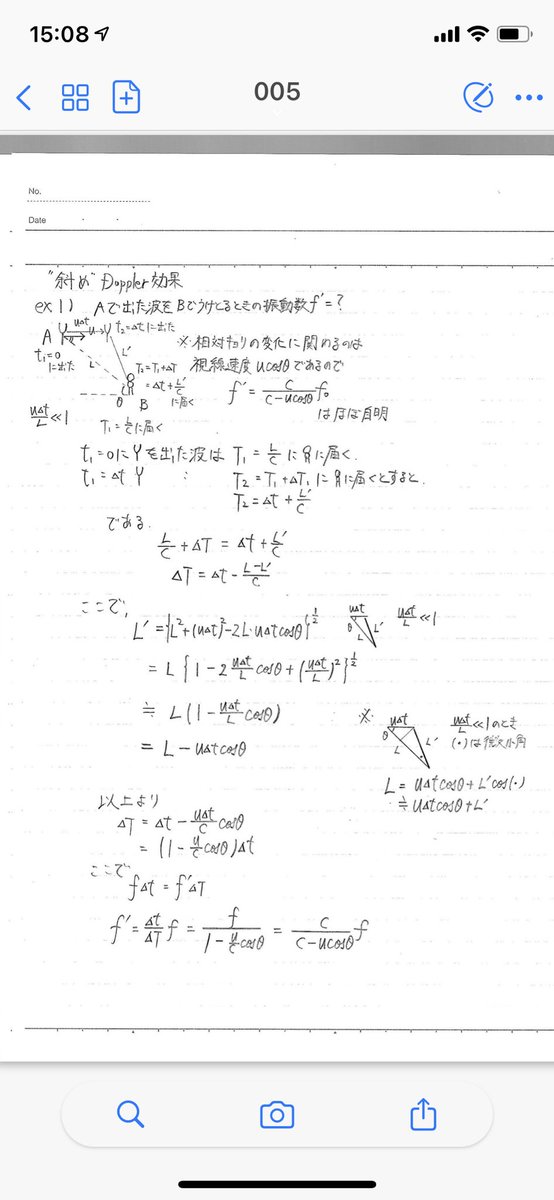 15:08
005
No.
Date
"斜め" Doppler効果
ex 1) Aで出た波をBでうけとるときの振動数f'=?
uΔt
A u t₂=Δtに出た
t₁=0
に出た
L L'
T₂=T₁+ΔT
=Δt+L'/C
に届く
θ B
uΔt/L ≪1
T₁=L/Cに届く
※相対キョリの変化に関めるのは
視線速度 ucosθ であるので
f' = C/(C-ucosθ) f₀
はほぼ自明
t₁=0にYを出た波は T₁=L/C に届く.
t₁=Δt Y : T₂=T₁+ΔT₁ に届くとすると.
T₂=Δt+L'/C
である.
L/C+ΔT = Δt+L'/C
ΔT = Δt - (L-L')/C
ここで,
L' = {L²+(uΔt)²-2L·uΔtcosθ}^(1/2)
uΔt
θ L'
uΔt/L ≪1
= L{1-2 uΔt/L cosθ+(uΔt/L)²}^(1/2)
≒ L(1-uΔt/L cosθ)
= L-uΔtcosθ
※ uΔt
θ L L'
uΔt/L ≪1のとき
(•)は微小角
L = uΔtcosθ+L'cos(•)
≒ uΔtcosθ+L'
以上より
ΔT = Δt - uΔt/C cosθ
= (1-u/C cosθ)Δt
ここで
fΔt = f'ΔT
f' = Δt/ΔT f = f/(1-u/C cosθ) = C/(C-ucosθ) f